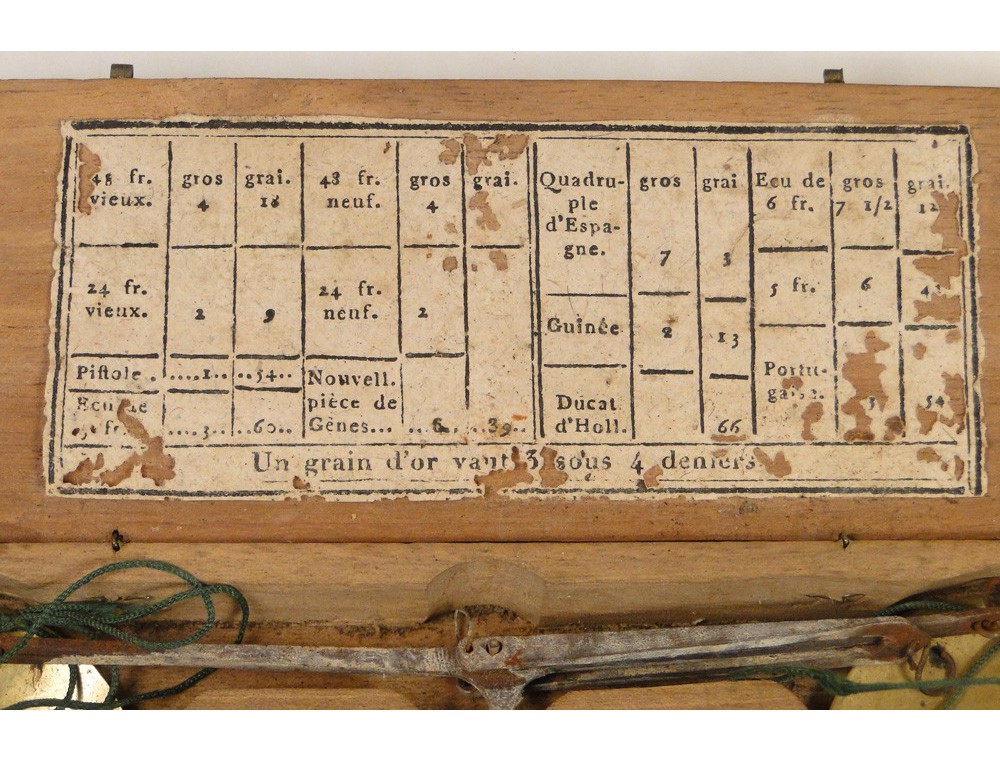 48 fr.
vieux.
gros
4
grai.
18
48 fr.
neuf.
gros
4
grai.
Quadru-
ple
d'Espa-
gne.
gros
7
grai
3
Ecu de
6 fr.
gros
7 1/2
grai.
24 fr.
vieux.
2
9
24 fr.
neuf.
2
Guinée
2
13
5 fr.
6
Piſtole .
....1..
..54..
Nouvell.
pièce de
Gênes...
..8..
..39..
Ducat
d'Holl.
66
Portu-
54
Ecu de
fr.
....3..
..60..
Un grain d'or vaut 3 sous 4 deniers